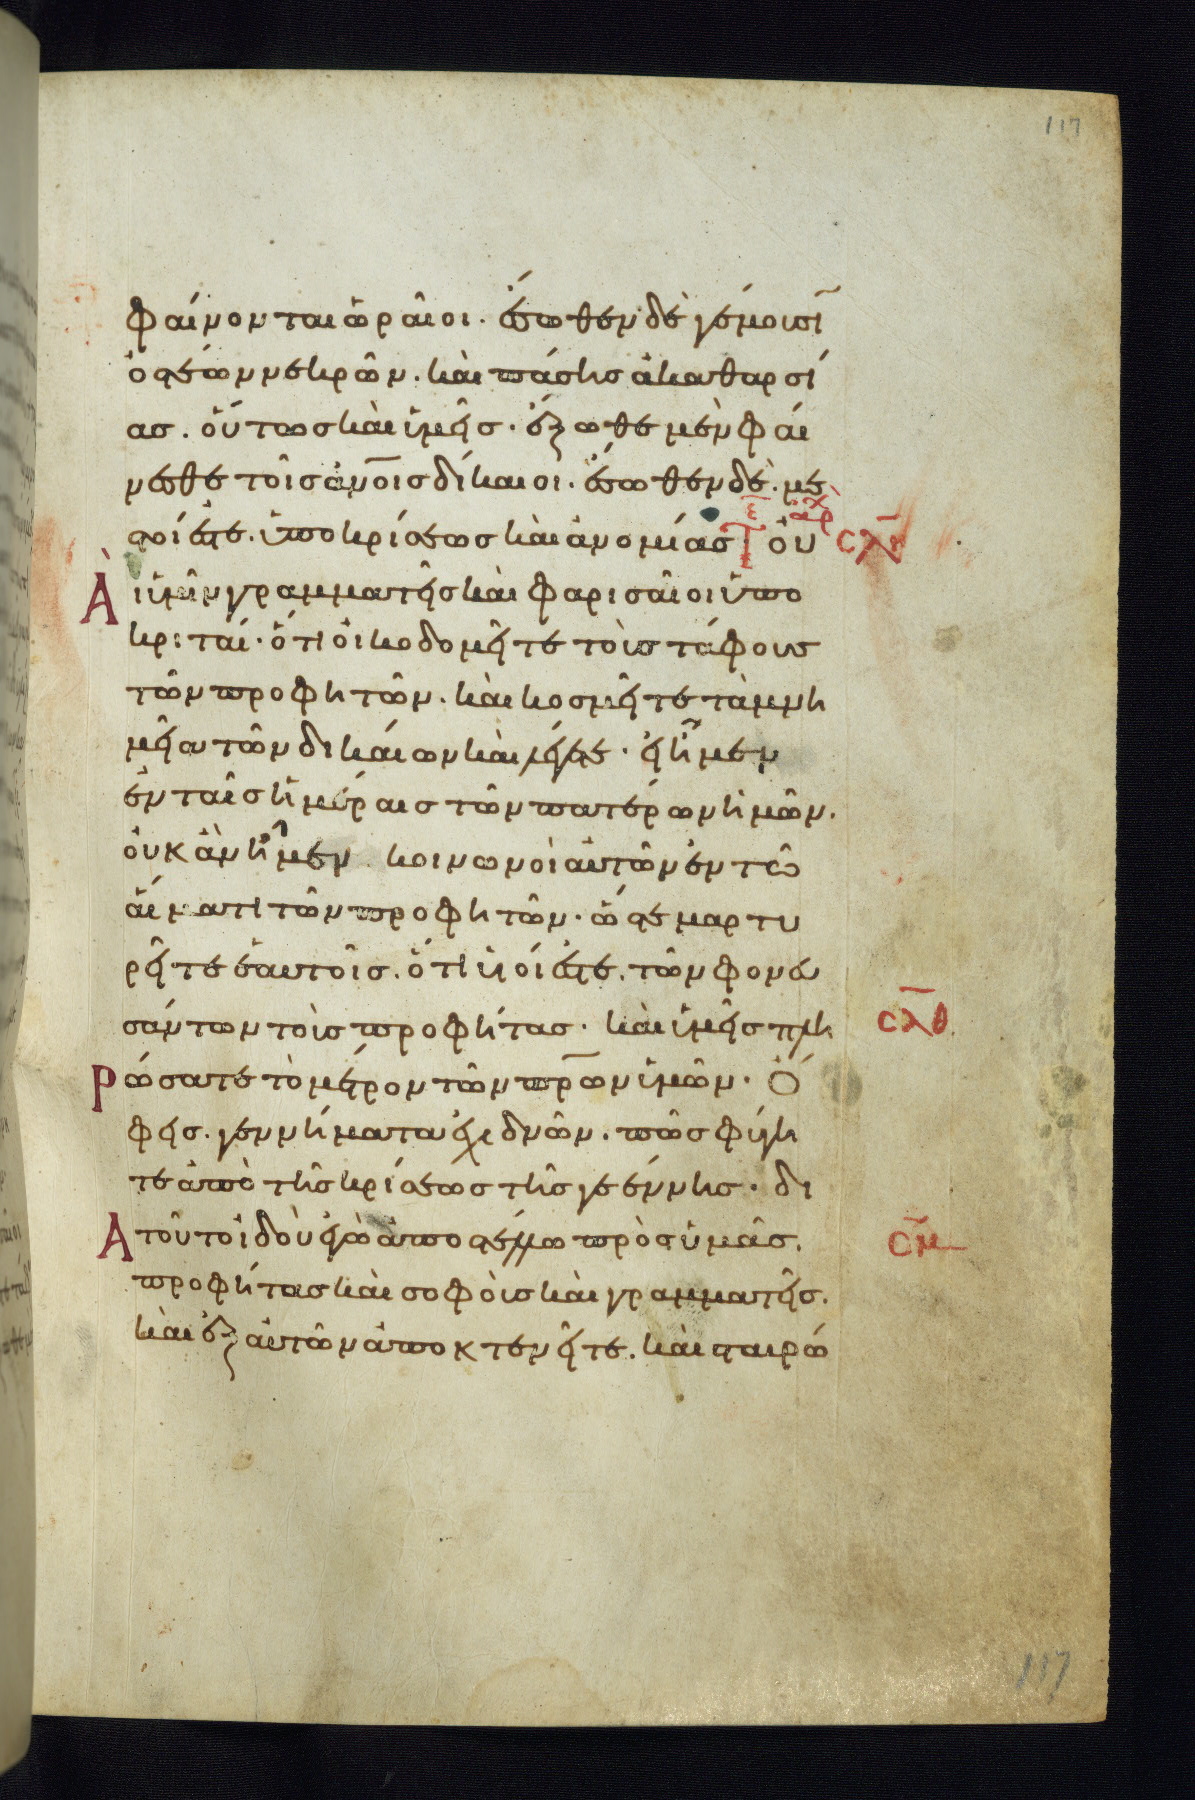 117
φαίνονται ὡραῖοι. ἔσωθεν δὲ γέμουσῖ
ὀστέων νεκρῶν. καὶ πάσης ἀκαθαρσί
ας. οὕτως καὶ ὑμεῖς. ἔξωθε μὲν φαί
νεσθε τοῖς ἀν̅οις δίκαιοι. ἔσωθεν δὲ. με
στοί ἐστε. ὑποκρίσεως καὶ ἀνομίας οὐ σλη̅
Αὶ ὑμῖν γραμματεῖς καὶ φαρισαῖοι ὑπο
κριταί. ὅτι οἰκοδομεῖτε τοὺς τάφους
τῶν προφητῶν. καὶ κοσμεῖτε τὰ μνη
μεῖα τῶν δικαίων καὶ λέγετε. εἰ ἦμεν
ἐν ταῖς ἡμέραις τῶν πατέρων ἡμῶν.
οὐκ ἂν ἦμεν κοινωνοὶ αὐτῶν ἐν τῶ
αἵματι τῶν προφητῶν. ὥστε μαρτυ
ρεῖτε ἑαυτοῖς. ὅτι υἱοί ἐστε. τῶν φονευ
σάντων τοὺς προφήτας. καὶ ὑμεῖς πλη σλθ̅
Ρώσατε τὸ μέτρον τῶν πρ̅ων ὑμῶν. Ὄ
φεις. γεννήματα ἐχιδνῶν. πῶς φύγη
τε ἀπὸ τῆς κρίσεως τῆς γεέννης. δι
Α τοῦτο ἰδοὺ ἐγὼ ἀποστέλλω πρὸς ὑμᾶς. σμ̅
προφήτας καὶ σοφοὺς καὶ γραμματεῖς.
καὶ ἐξ αὐτῶν ἀποκτενεῖτε. καὶ σταυρώ
117